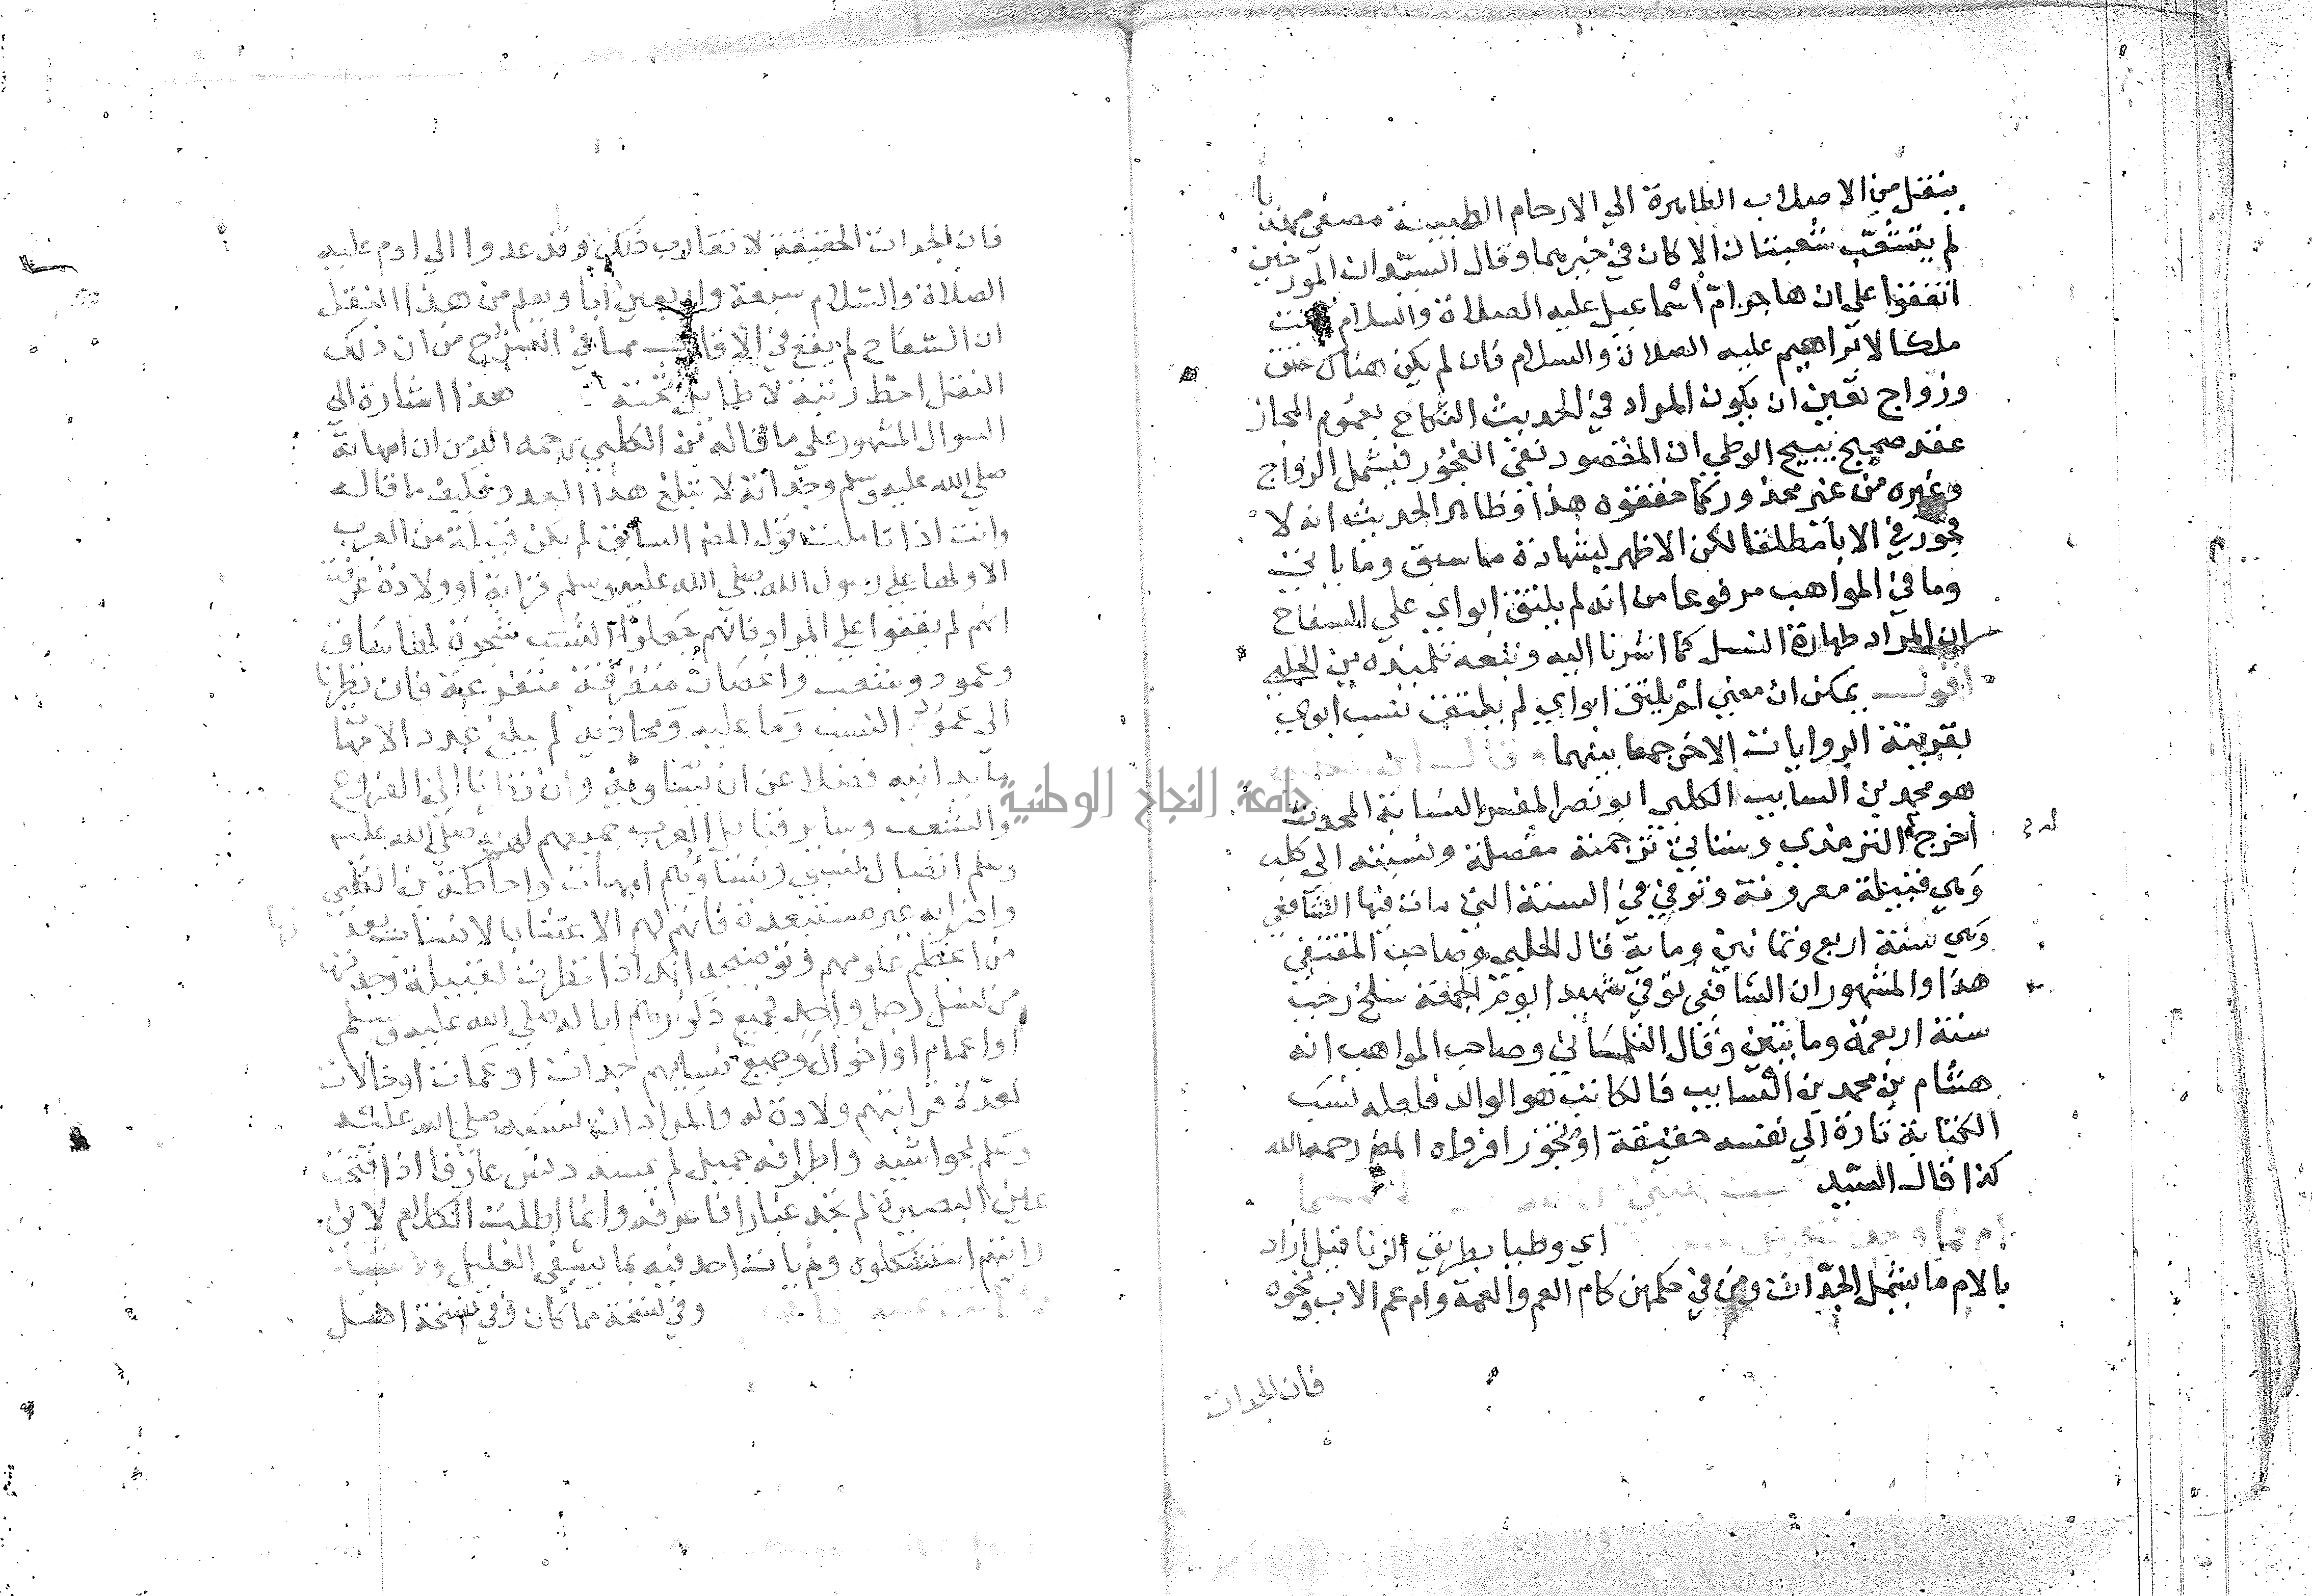 ينتقل من الاصلاب الطاهرة الي الارحام الطيبة مصفي مهذبا
لم يتشعب شعبتان الا كان في خيرهما وقال السيد ان المورخين
اتفقوا علي ان هاجر ام اسماعيل عليه الصلاة والسلام كانت
ملكا لابراهيم عليه الصلاة والسلام فان لم يكن هناك عتق
وزواج تعين ان يكون المراد في الحديث النكاح بعموم المجاز
عقد صحيح يبيح الوطي ان المقصود نفي الفجور فيشمل الزواج
وغيره من غير محذور كما حققوه هذا وظاهر الحديث انه لا
فجور في الابا مطلقا لكن الاظهر بشهادة ما سبق وما ياتي
وما في المواهب مرفوعا من انه لم يلتق ابواي علي السفاح
ان المراد طهارة النسل كما اشرنا اليه وتبعه تلميذه بن الحلبي
اقول يمكن ان معني لم يلتق ابواي لم يلتق نسب ابوي
بقرينة الروايات الاخر جمعا بينهما وقال
هو محمد بن السايب الكلبي ابو نصر المفسر النسابة المحدث
اخرج له الترمذي وستاتي ترجمته مفصلة ونسبته الي كلب
وهي قبيلة معروفة وتوفي في السنة التي مات فيها الشافعي
وهي سنة اربع وثمانين وماية قال الحلبي وصاحب المقتفي
هذا والمشهور ان الشافعي توفي شهيدا يوم الجمعة سلخ رجب
سنة اربعة ومايتين وقال التلمساني وصاحب المواهب انه
هشام بن محمد بن السايب فالكاتب هو الوالد فلعله نسب
الكتابة تارة الي نفسه حقيقة او تجوزا فرواه المص رحمه الله
كذا قال السيد
اي وطيا بطريق الزنا قيل اراد
بالام ما يشمل الجدات ومن في حكمهن كام العم والعمة وام عم الاب ونحوه
فان الجدات
فان الجدات الحقيقة لا تقارب ذلك وقد عدوا الي ادم عليه
الصلاة والسلام سبعة واربعين ابا ويعلم من هذا النقل
ان السفاح لم يقع في الاقارب مما في الشرح من ان ذلك
النقل احط رتبة لا طايل تحته هذا اشارة الي
السوال المشهور علي ما قاله بن الكلبي رحمه الله من ان امهاته
صلي الله عليه وسلم وجداته لا تبلغ هذا العدد فكيف ما قاله
وانت اذا تاملت قول المص السابق لم يكن قبيلة من العرب
الا ولها علي رسول الله صلي الله عليه وسلم قرابة او ولادة عرفت
انهم لم يقفوا علي المراد فانهم جعلوا النسب شجرة لها ساق
وعمود وشعب واغصان متفرقة متفرعة فان نظرنا
الي عمود النسب وما عليه ومحاذيه لم يبلغ عدد الامهات
ما يدانيه فضلا عن ان يساويه وان نظرنا الي الفروع
والشعب وساير قبايل العرب جميعهم له به صلي الله عليه
وسلم اتصال نسبي ونساوهم امهات واحاطة بن الكلبي
واضرابه غير مستبعدة فانهم لهم الاعتنا بالانساب يعد
من اعظم علومهم وتوضيحه انك اذا نظرت لقبيلة وجدتها
من نسل رجل واحد فجميع ذكورهم ابا له صلي الله عليه وسلم
او اعمام او اخوال وجميع نسايهم جدات او عمات او خالات
لعدة قرابتهم ولادة له والمراد ان نسبه صلي الله عليه
وسلم بحواشيه واطرافه جميل لم يمسه دنس عارفا اذا فتحت
عين البصيرة لم تجد غبارا فاعرفه وانما اطلت الكلام لاني
رايتهم استشكلوه ولم يات احد فيه بما يشفي الغليل
وفي نسخة مما كان وفي نسخة اهل
جامعة النجاح الوطنية